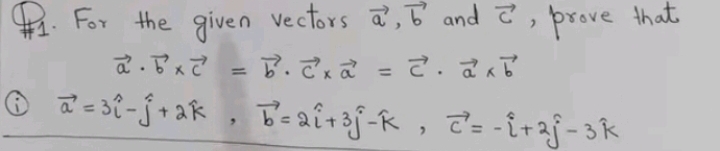 Q#1. For the given vectors a⃗, b⃗ and c⃗, prove that
a⃗ . b⃗ × c⃗ = b⃗ . c⃗ × a⃗ = c⃗ . a⃗ × b⃗
(i) a⃗ = 3î - ĵ + 2k̂ , b⃗ = 2î + 3ĵ - k̂ , c⃗ = -î + 2ĵ - 3k̂